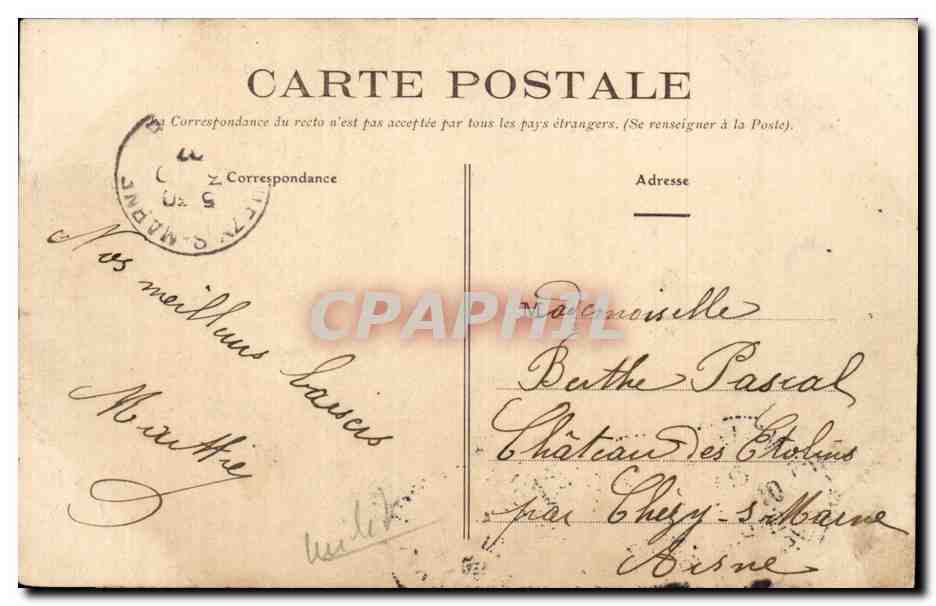 CARTE POSTALE
La Correspondance du recto n'est pas acceptée par tous les pays étrangers. (Se renseigner à la Poste).
Correspondance
Adresse
CHEZY-S-MARNE
Nos meilleurs baisers
Marthe
Mademoiselle
Berthe Pascal
Château des Etolins
par Chézy-s-Marne
Aisne
CPAPHIL